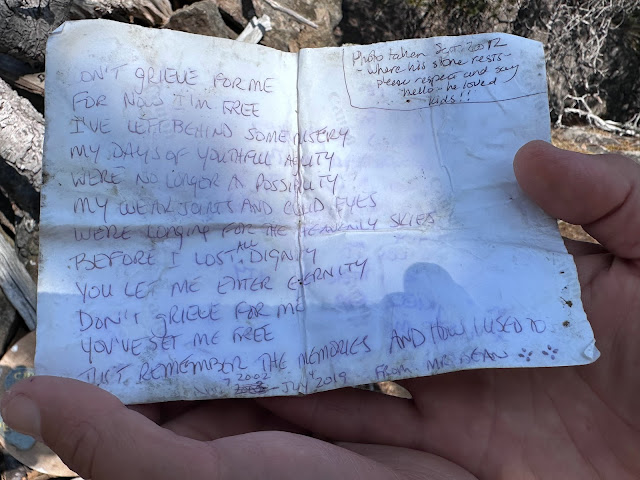 Photo taken Sept.
- Where his stone rests -
please respect and say
"hello" - he loved
kids!!
ON'T GRIEVE FOR ME
FOR NOW I'M FREE
I'VE LEFT BEHIND SOME MISERY
MY DAYS OF YOUTHFULL AGILITY
WERE NO LONGER A POSSIBLITY
MY WEAK JOINTS AND EYES
WERE LONGING FOR THE HEAVENLY SKIES
BEFORE I LOST ALL DIGNITY
YOU LET ME ENTER ETERNITY
DON'T GRIEVE FOR ME
YOU'VE SET ME FREE
JUST REMEMBER THE MEMORIES AND HOW I USED TO
2002 - JULY 2019 FROM MR. SEAN